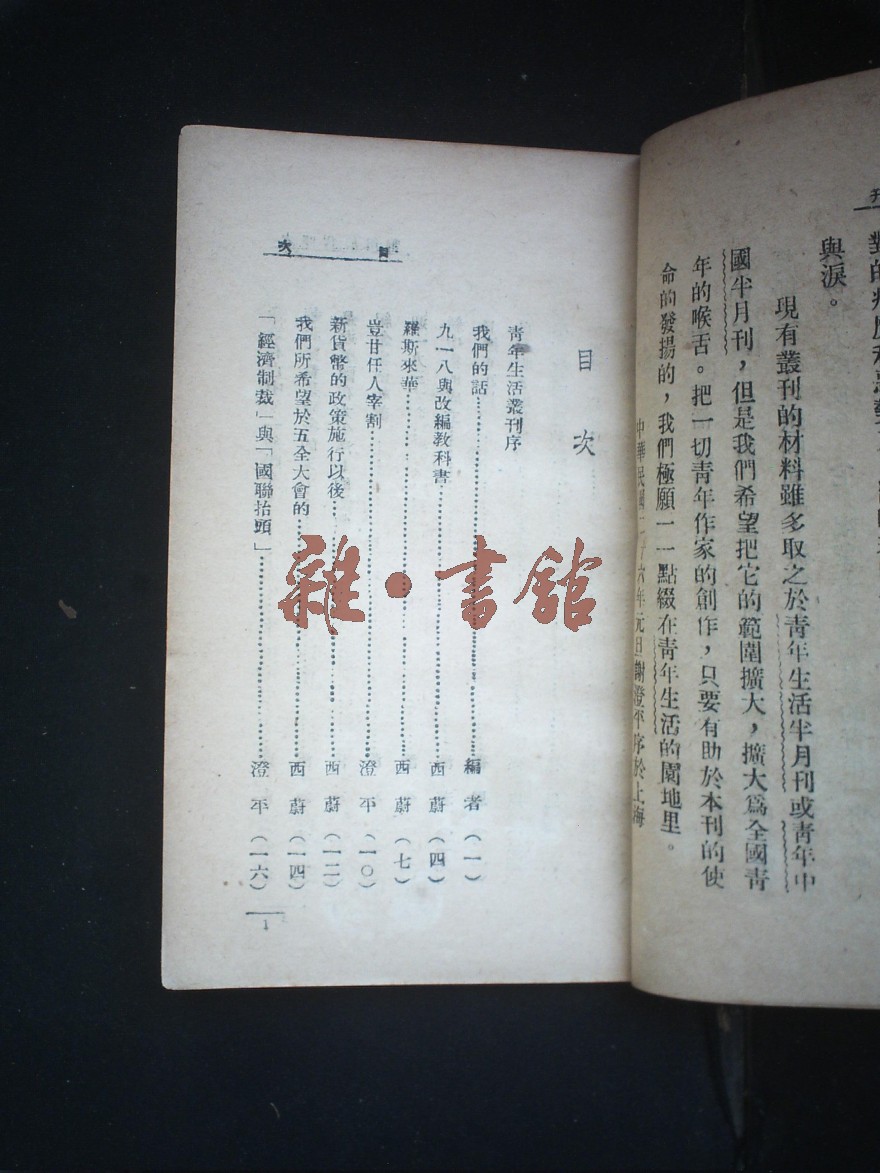 與淚。
現有叢刊的材料雖多取之於靑年生活半月刊或靑年中
國半月刊，但是我們希望把它的範圍擴大，擴大爲全國靑
年的喉舌。把一切靑年作家的創作，只要有助於本刊的使
命的發揚的，我們極願一一點綴在靑年生活的園地里。
中華民國二十六年元旦謝澄平序於上海
目次
目次
靑年生活叢刊序
我們的話……編者（一）
九一八與改編敎科書……西蔚（四）
羅斯來華……西蔚（七）
豈甘任人宰割……澄平（一〇）
新貨幣的政策施行以後……西蔚（一二）
我們所希望於五全大會的……西蔚（一四）
「經濟制裁」與「國聯抬頭」……澄平（一六）
1
雜·書館